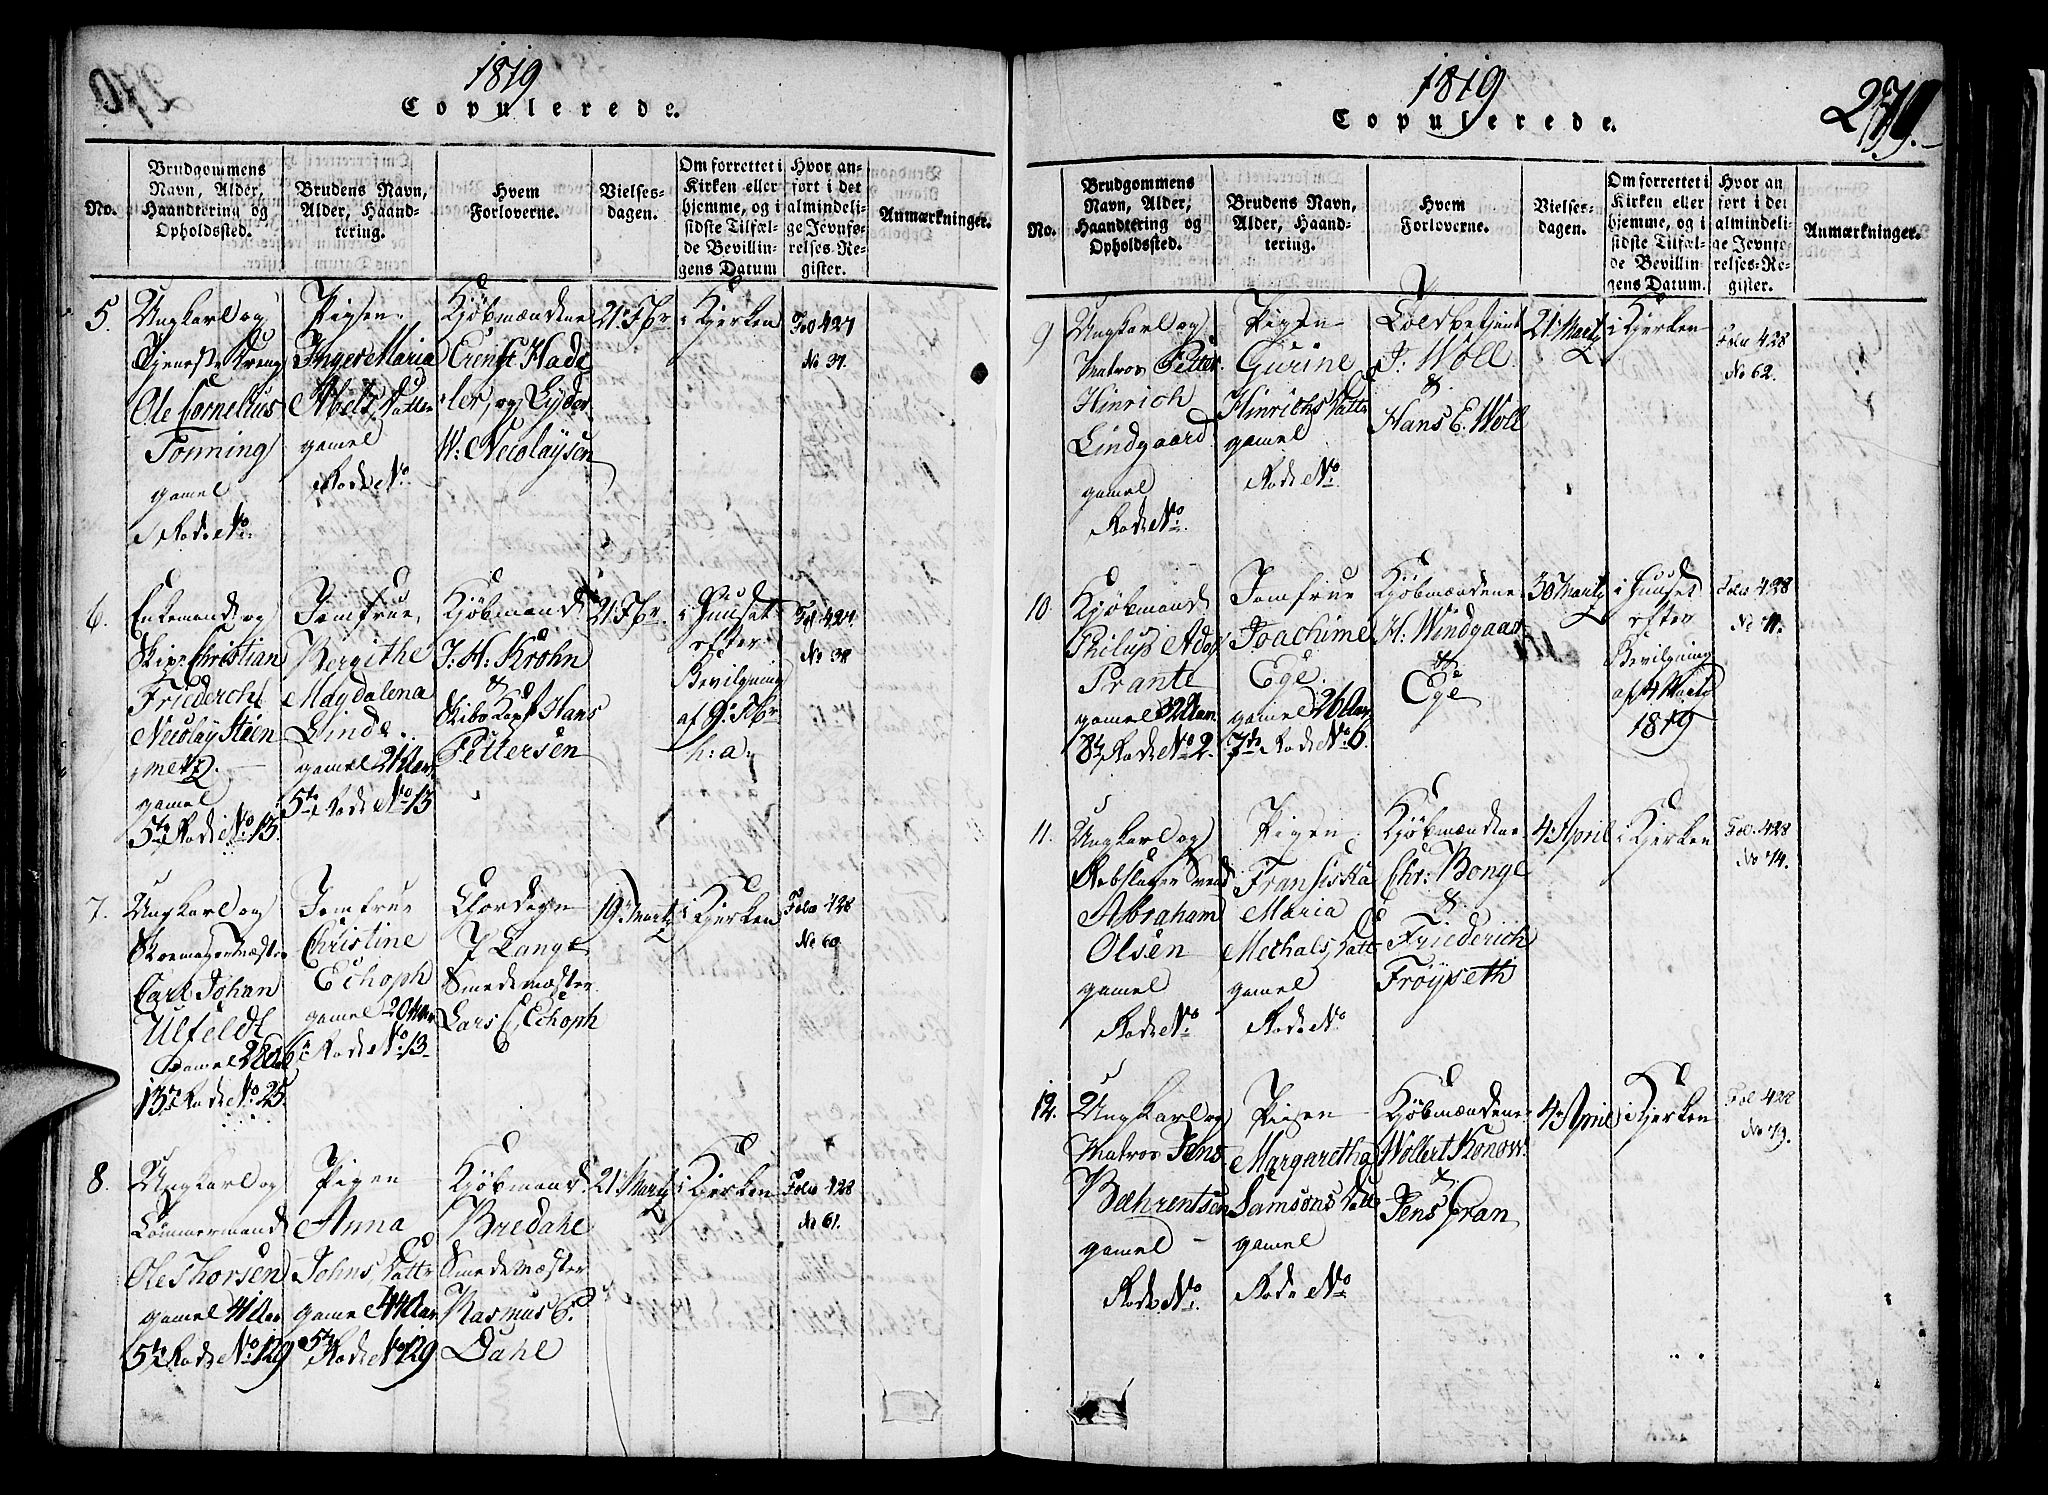 1819
Copulerede.
No.
Brudgommens
Navn, Alder,
Haandtering og
Opholdssted.
Brudens Navn,
Alder, Haand-
tering.
Hvem
Forloverne.
Vielses-
dagen.
Om forrettet i
Kirken eller
hjemme, og i
sidste Tilfæl-
de Bevillin-
gens Datum
Hvor an-
ført i det
almindeli-
ge Jevnfø-
relses-Re-
gister.
Anmærkninger.
5.
Ungkarl og
Ole Cornelius
Tonning
gamel
Rode No.
Pigen
Inger Maria
Abels Datter
gamel
Rode No.
Kjøbmændene
Ernst Hade
ler, og Lyder
W: Nicolaysen
21: Fbr
i Kjerken
Fol 427
No 37.
6.
Enkemand og
Skipr Christian
Friederich
Nicolay Stein
metz.
gamel
5te Rode No. 13.
Jomfrue
Bergithe
Magdalena
Linde.
gamel 21 Aar
5te Rode No 13
Kjøbmand
J. H. Krohn
&
Skibs Capt Hans
Pettersen
21: Fbr.
i Huuset
efter
Bevilgning
af 9: Fbr
h: a:
Fol. 427
No 38
7.
Ungkarl og
Skomager Mæster
Carl Johan
Ulfeldt
gamel 28 Aar
13 Rode No 25.
Jomfrue
Christine
Echoph
gamel 20 Aar
Rode No 13
Klordegn
J Lange
Smedemæster
Lars C. Echoph
19: Martz
i Kjerken
Folio 428
No 60
8.
Ungkarl og
Tømmermand
Ole Thorsen
gamel 41 Aar
5te Rode No 129
Pigen
Anna
Johns Dattr
gamel 44 Aar
5te Rode No 129
Kjøbmand
Bredahl
Smedemæster
Rasmus C.
Dahl
21: Martz
i Kjerken
Folio 428
No 61.
1819
Copulerede.
279.
No.
Brudgommens
Navn, Alder,
Haandtering og
Opholdssted.
Brudens Navn,
Alder, Haand-
tering.
Hvem
Forloverne.
Vielses-
dagen.
Om forrettet i
Kirken eller
hjemme, og i
sidste Tilfæl-
de Bevillin-
gens Datum.
Hvor an
ført i det
almindeli-
ge Jevnfø-
relses-Re-
gister.
Anmærkninger.
9
Ungkarl og
Matros Petter
Hinrich
Lindgaard
gamel
Rode No.
Pigen
Gurine
Hinrichs Dattr
gamel
Rode No.
Toldbetjent
J. Woll
&
Hans E. Woll
21: Martz
i Kjerken
Folio 428
No 62.
10.
Kjøbmand
Philup Adoy
Prante
gamel 32 Aar
8de Rode No 2.
Jomfrue
Joachime
Ege.
gamel 26 Aar
7de Rode No 6.
Kjøbmændene
H. Windgaar
&
Ege
30 Martz
i Huuset
efter
Bevilgning
af 4 Martz
1819
Folio 428
No 71.
11.
Ungkarl og
Rebslager Svend
Abraham
Olsen
gamel
Rode No
Pigen
Fransiska
Maria
Mechals Datt
gamel
Rode No
Kjøbmændene
Chr: Bonge
&
Friederich
Frøyseth
4: April
i Kjerken
Fol. 428
No 74.
12.
Ungkarl og
Matros Jens
Baehrentsen
gamel
Rode No.
Pigen
Margaretha
Samsons Datter
gamel
Rode No
Kjøbmændene
Wollert Konow
&
Jens Gran
4 April
i Kjerken
Fol 428
No 79.